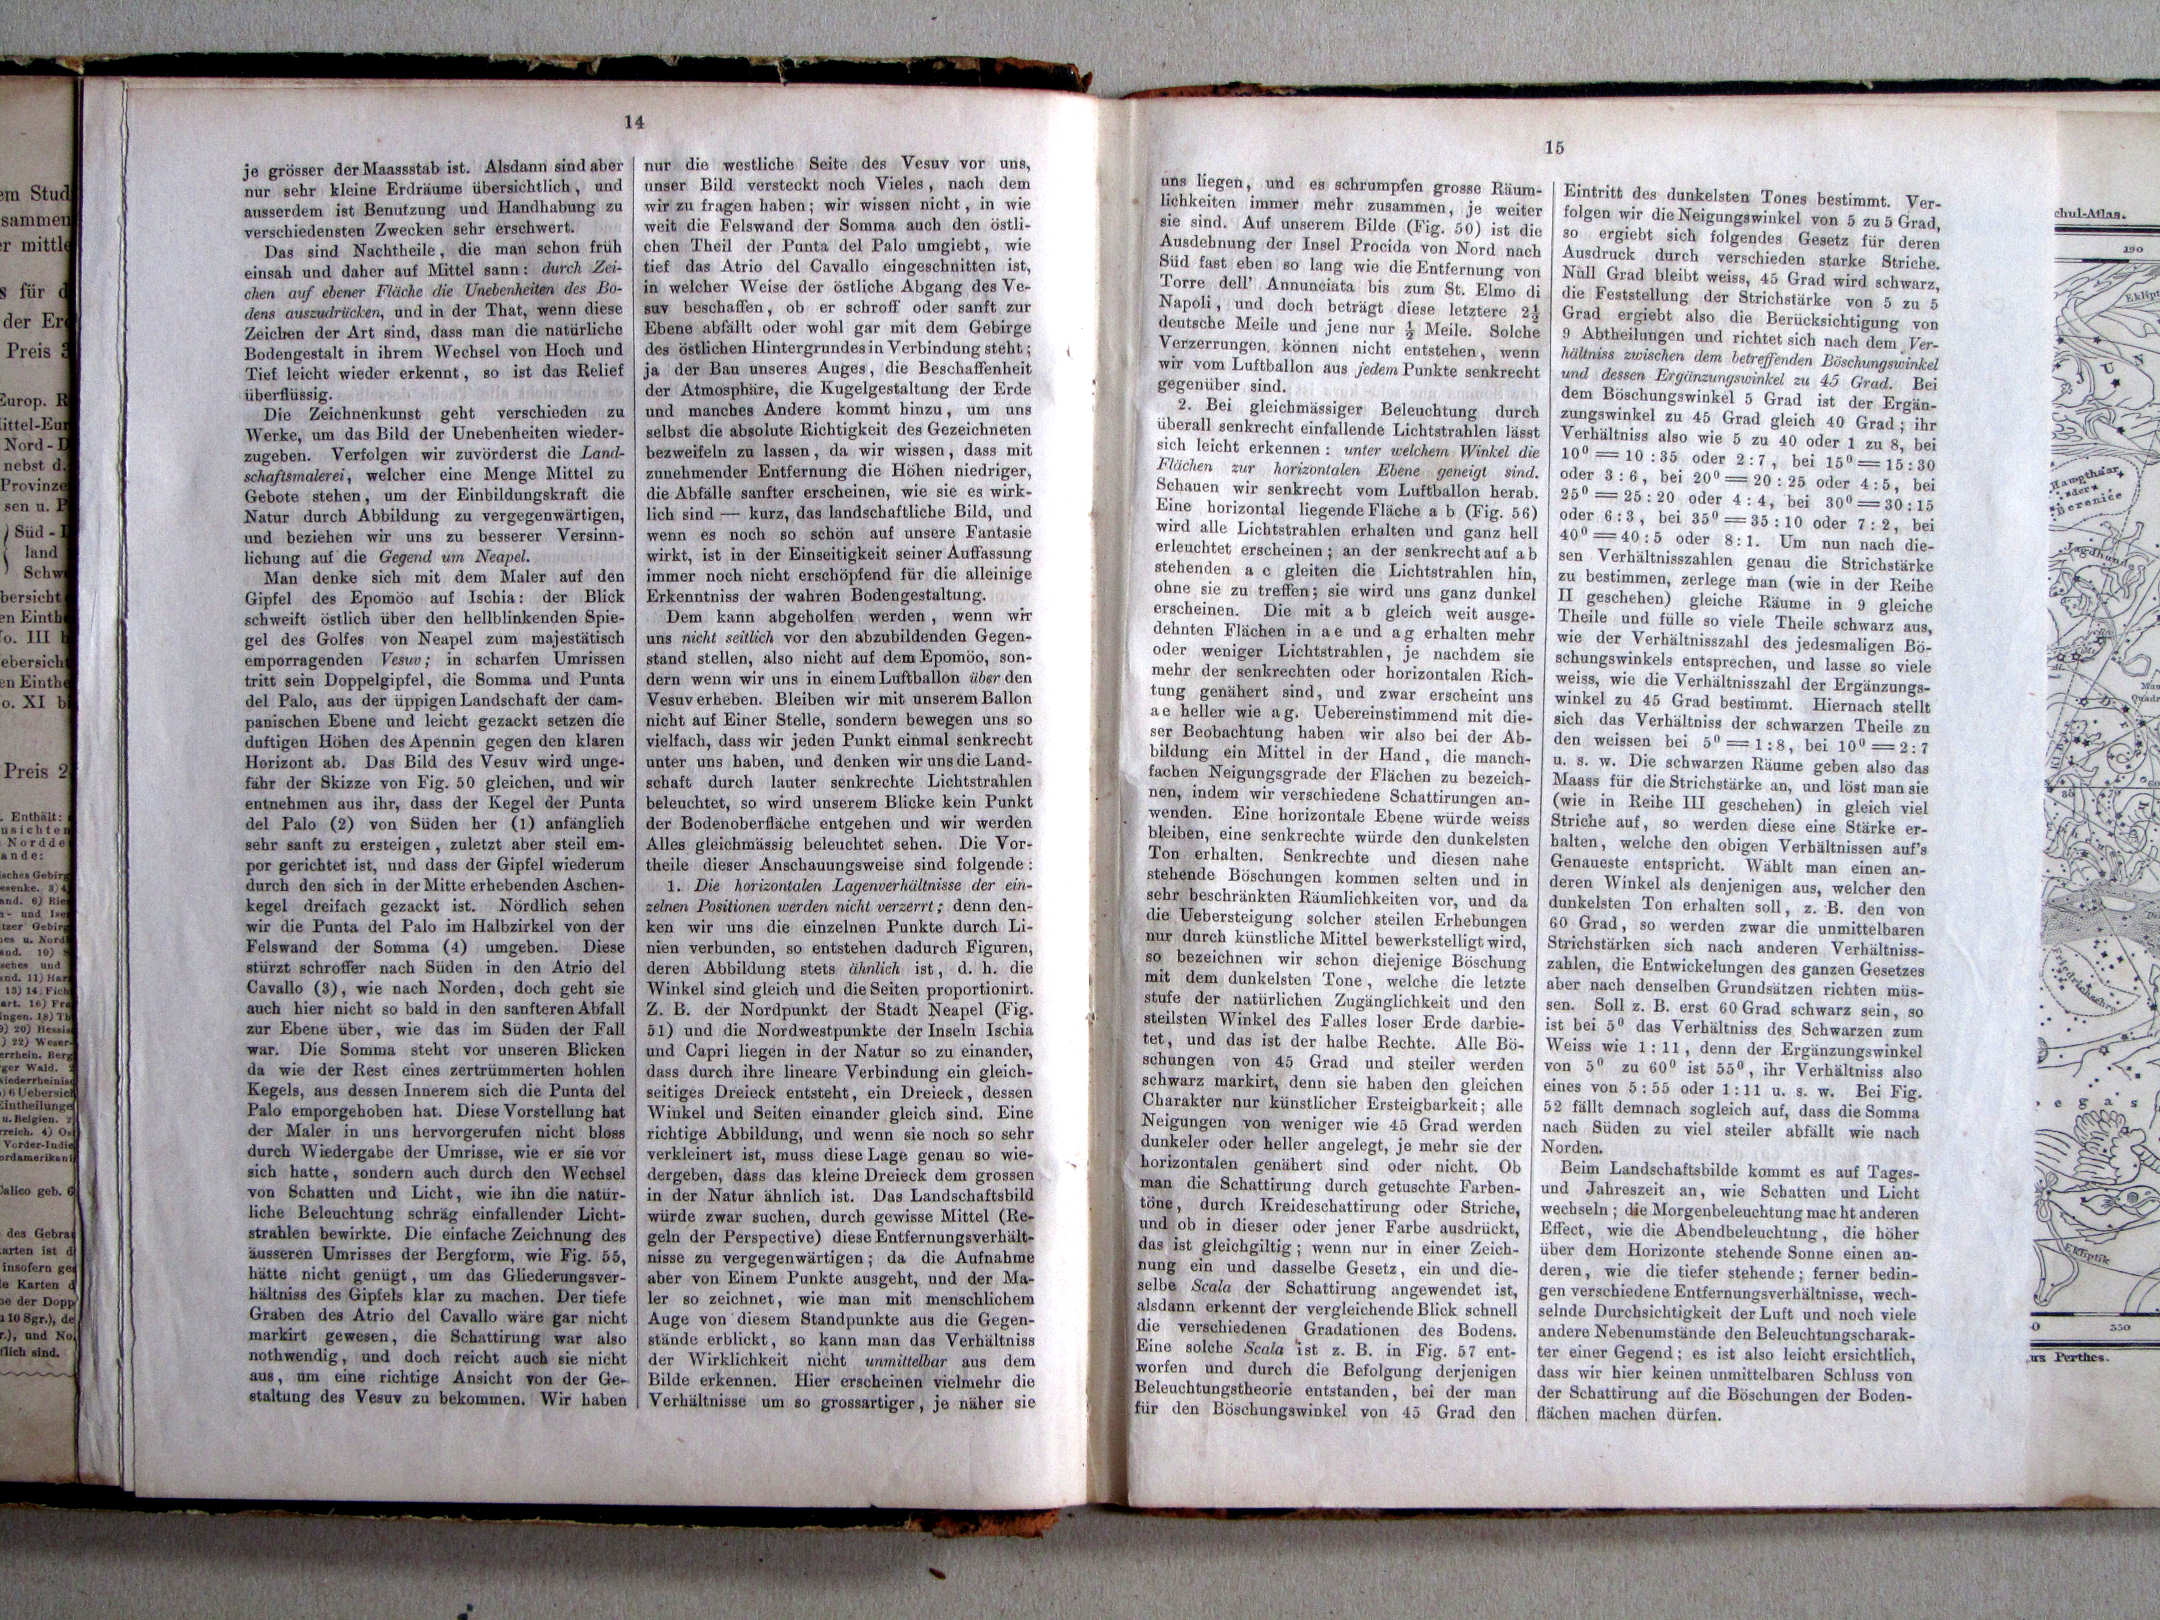 14
je grösser der Maassstab ist. Alsdann sind aber
nur sehr kleine Erdräume übersichtlich, und
ausserdem ist Benutzung und Handhabung zu
verschiedensten Zwecken sehr erschwert.
Das sind Nachtheile, die man schon früh
einsah und daher auf Mittel sann: durch Zei-
chen auf ebener Fläche die Unebenheiten des Bo-
dens auszudrücken, und in der That, wenn diese
Zeichen der Art sind, dass man die natürliche
Bodengestalt in ihrem Wechsel von Hoch und
Tief leicht wieder erkennt, so ist das Relief
überflüssig.
Die Zeichnenkunst geht verschieden zu
Werke, um das Bild der Unebenheiten wieder-
zugeben. Verfolgen wir zuvörderst die Land-
schaftsmalerei, welcher eine Menge Mittel zu
Gebote stehen, um der Einbildungskraft die
Natur durch Abbildung zu vergegenwärtigen,
und beziehen wir uns zu besserer Versinn-
lichung auf die Gegend um Neapel.
Man denke sich mit dem Maler auf den
Gipfel des Epomöo auf Ischia: der Blick
schweift östlich über den hellblinkenden Spie-
gel des Golfes von Neapel zum majestätisch
emporragenden Vesuv; in scharfen Umrissen
tritt sein Doppelgipfel, die Somma und Punta
del Palo, aus der üppigen Landschaft der cam-
panischen Ebene und leicht gezackt setzen die
duftigen Höhen des Apennin gegen den klaren
Horizont ab. Das Bild des Vesuv wird unge-
fähr der Skizze von Fig. 50 gleichen, und wir
entnehmen aus ihr, dass der Kegel der Punta
del Palo (2) von Süden her (1) anfänglich
sehr sanft zu ersteigen, zuletzt aber steil em-
por gerichtet ist, und dass der Gipfel wiederum
durch den sich in der Mitte erhebenden Aschen-
kegel dreifach gezackt ist. Nördlich sehen
wir die Punta del Palo im Halbzirkel von der
Felswand der Somma (4) umgeben. Diese
stürzt schroffer nach Süden in den Atrio del
Cavallo (3), wie nach Norden, doch geht sie
auch hier nicht so bald in den sanfteren Abfall
zur Ebene über, wie das im Süden der Fall
war. Die Somma steht vor unseren Blicken
da wie der Rest eines zertrümmerten hohlen
Kegels, aus dessen Innerem sich die Punta del
Palo emporgehoben hat. Diese Vorstellung hat
der Maler in uns hervorgerufen nicht bloss
durch Wiedergabe der Umrisse, wie er sie vor
sich hatte, sondern auch durch den Wechsel
von Schatten und Licht, wie ihn die natür-
liche Beleuchtung schräg einfallender Licht-
strahlen bewirkte. Die einfache Zeichnung des
äusseren Umrisses der Bergform, wie Fig. 55,
hätte nicht genügt, um das Gliederungsver-
hältniss des Gipfels klar zu machen. Der tiefe
Graben des Atrio del Cavallo wäre gar nicht
markirt gewesen, die Schattirung war also
nothwendig, und doch reicht auch sie nicht
aus, um eine richtige Ansicht von der Ge-
staltung des Vesuv zu bekommen. Wir haben
nur die westliche Seite des Vesuv vor uns,
unser Bild versteckt noch Vieles, nach dem
wir zu fragen haben; wir wissen nicht, in wie
weit die Felswand der Somma auch den östli-
chen Theil der Punta del Palo umgiebt, wie
tief das Atrio del Cavallo eingeschnitten ist,
in welcher Weise der östliche Abgang des Ve-
suv beschaffen, ob er schroff oder sanft zur
Ebene abfällt oder wohl gar mit dem Gebirge
des östlichen Hintergrundes in Verbindung steht;
ja der Bau unseres Auges, die Beschaffenheit
der Atmosphäre, die Kugelgestaltung der Erde
und manches Andere kommt hinzu, um uns
selbst die absolute Richtigkeit des Gezeichneten
bezweifeln zu lassen, da wir wissen, dass mit
zunehmender Entfernung die Höhen niedriger,
die Abfälle sanfter erscheinen, wie sie es wirk-
lich sind — kurz, das landschaftliche Bild, und
wenn es noch so schön auf unsere Fantasie
wirkt, ist in der Einseitigkeit seiner Auffassung
immer noch nicht erschöpfend für die alleinige
Erkenntniss der wahren Bodengestaltung.
Dem kann abgeholfen werden, wenn wir
uns nicht seitlich vor den abzubildenden Gegen-
stand stellen, also nicht auf dem Epomöo, son-
dern wenn wir uns in einem Luftballon über den
Vesuv erheben. Bleiben wir mit unserem Ballon
nicht auf Einer Stelle, sondern bewegen uns so
vielfach, dass wir jeden Punkt einmal senkrecht
unter uns haben, und denken wir uns die Land-
schaft durch lauter senkrechte Lichtstrahlen
beleuchtet, so wird unserem Blicke kein Punkt
der Bodenoberfläche entgehen und wir werden
Alles gleichmässig beleuchtet sehen. Die Vor-
theile dieser Anschauungsweise sind folgende:
1. Die horizontalen Lagenverhältnisse der ein-
zelnen Positionen werden nicht verzerrt; denn den-
ken wir uns die einzelnen Punkte durch Li-
nien verbunden, so entstehen dadurch Figuren,
deren Abbildung stets ähnlich ist, d. h. die
Winkel sind gleich und die Seiten proportionirt.
Z. B. der Nordpunkt der Stadt Neapel (Fig.
51) und die Nordwestpunkte der Inseln Ischia
und Capri liegen in der Natur so zu einander,
dass durch ihre lineare Verbindung ein gleich-
seitiges Dreieck entsteht, ein Dreieck, dessen
Winkel und Seiten einander gleich sind. Eine
richtige Abbildung, und wenn sie noch so sehr
verkleinert ist, muss diese Lage genau so wie-
dergeben, dass das kleine Dreieck dem grossen
in der Natur ähnlich ist. Das Landschaftsbild
würde zwar suchen, durch gewisse Mittel (Re-
geln der Perspective) diese Entfernungsverhält-
nisse zu vergegenwärtigen; da die Aufnahme
aber von Einem Punkte ausgeht, und der Ma-
ler so zeichnet, wie man mit menschlichem
Auge von diesem Standpunkte aus die Gegen-
stände erblickt, so kann man das Verhältniss
der Wirklichkeit nicht unmittelbar aus dem
Bilde erkennen. Hier erscheinen vielmehr die
Verhältnisse um so grossartiger, je näher sie
15
uns liegen, und es schrumpfen grosse Räum-
lichkeiten immer mehr zusammen, je weiter
sie sind. Auf unserem Bilde (Fig. 50) ist die
Ausdehnung der Insel Procida von Nord nach
Süd fast eben so lang wie die Entfernung von
Torre dell' Annunciata bis zum St. Elmo di
Napoli, und doch beträgt diese letztere 2½
deutsche Meile und jene nur ½ Meile. Solche
Verzerrungen können nicht entstehen, wenn
wir vom Luftballon aus jedem Punkte senkrecht
gegenüber sind.
2. Bei gleichmässiger Beleuchtung durch
überall senkrecht einfallende Lichtstrahlen lässt
sich leicht erkennen: unter welchem Winkel die
Flächen zur horizontalen Ebene geneigt sind.
Schauen wir senkrecht vom Luftballon herab.
Eine horizontal liegende Fläche a b (Fig. 56)
wird alle Lichtstrahlen erhalten und ganz hell
erleuchtet erscheinen; an der senkrecht auf a b
stehenden a c gleiten die Lichtstrahlen hin,
ohne sie zu treffen; sie wird uns ganz dunkel
erscheinen. Die mit a b gleich weit ausge-
dehnten Flächen in a e und a g erhalten mehr
oder weniger Lichtstrahlen, je nachdem sie
mehr der senkrechten oder horizontalen Rich-
tung genähert sind, und zwar erscheint uns
a e heller wie a g. Uebereinstimmend mit die-
ser Beobachtung haben wir also bei der Ab-
bildung ein Mittel in der Hand, die manch-
fachen Neigungsgrade der Flächen zu bezeich-
nen, indem wir verschiedene Schattirungen an-
wenden. Eine horizontale Ebene würde weiss
bleiben, eine senkrechte würde den dunkelsten
Ton erhalten. Senkrechte und diesen nahe
stehende Böschungen kommen selten und in
sehr beschränkten Räumlichkeiten vor, und da
die Uebersteigung solcher steilen Erhebungen
nur durch künstliche Mittel bewerkstelligt wird,
so bezeichnen wir schon diejenige Böschung
mit dem dunkelsten Tone, welche die letzte
stufe der natürlichen Zugänglichkeit und den
steilsten Winkel des Falles loser Erde darbie-
tet, und das ist der halbe Rechte. Alle Bö-
schungen von 45 Grad und steiler werden
schwarz markirt, denn sie haben den gleichen
Charakter nur künstlicher Ersteigbarkeit; alle
Neigungen von weniger wie 45 Grad werden
dunkeler oder heller angelegt, je mehr sie der
horizontalen genähert sind oder nicht. Ob
man die Schattirung durch getuschte Farben-
töne, durch Kreideschattirung oder Striche,
und ob in dieser oder jener Farbe ausdrückt,
das ist gleichgiltig; wenn nur in einer Zeich-
nung ein und dasselbe Gesetz, ein und die-
selbe Scala der Schattirung angewendet ist,
alsdann erkennt der vergleichende Blick schnell
die verschiedenen Gradationen des Bodens.
Eine solche Scala ist z. B. in Fig. 57 ent-
worfen und durch die Befolgung derjenigen
Beleuchtungstheorie entstanden, bei der man
für den Böschungswinkel von 45 Grad den
Eintritt des dunkelsten Tones bestimmt. Ver-
folgen wir die Neigungswinkel von 5 zu 5 Grad,
so ergiebt sich folgendes Gesetz für deren
Ausdruck durch verschieden starke Striche.
Null Grad bleibt weiss, 45 Grad wird schwarz,
die Feststellung der Strichstärke von 5 zu 5
Grad ergiebt also die Berücksichtigung von
9 Abtheilungen und richtet sich nach dem Ver-
hältniss zwischen dem betreffenden Böschungswinkel
und dessen Ergänzungswinkel zu 45 Grad. Bei
dem Böschungswinkel 5 Grad ist der Ergän-
zungswinkel zu 45 Grad gleich 40 Grad; ihr
Verhältniss also wie 5 zu 40 oder 1 zu 8, bei
10⁰ = 10:35 oder 2:7, bei 15⁰ = 15:30
oder 3:6, bei 20⁰ = 20:25 oder 4:5, bei
25⁰ = 25:20 oder 4:4, bei 30⁰ = 30:15
oder 6:3, bei 35⁰ = 35:10 oder 7:2, bei
40⁰ = 40:5 oder 8:1. Um nun nach die-
sen Verhältnisszahlen genau die Strichstärke
zu bestimmen, zerlege man (wie in der Reihe
II geschehen) gleiche Räume in 9 gleiche
Theile und fülle so viele Theile schwarz aus,
wie der Verhältnisszahl des jedesmaligen Bö-
schungswinkels entsprechen, und lasse so viele
weiss, wie die Verhältnisszahl der Ergänzungs-
winkel zu 45 Grad bestimmt. Hiernach stellt
sich das Verhältniss der schwarzen Theile zu
den weissen bei 5⁰ = 1:8, bei 10⁰ = 2:7
u. s. w. Die schwarzen Räume geben also das
Maass für die Strichstärke an, und löst man sie
(wie in Reihe III geschehen) in gleich viel
Striche auf, so werden diese eine Stärke er-
halten, welche den obigen Verhältnissen auf's
Genaueste entspricht. Wählt man einen an-
deren Winkel als denjenigen aus, welcher den
dunkelsten Ton erhalten soll, z. B. den von
60 Grad, so werden zwar die unmittelbaren
Strichstärken sich nach anderen Verhältniss-
zahlen, die Entwickelungen des ganzen Gesetzes
aber nach denselben Grundsätzen richten müs-
sen. Soll z. B. erst 60 Grad schwarz sein, so
ist bei 5⁰ das Verhältniss des Schwarzen zum
Weiss wie 1:11, denn der Ergänzungswinkel
von 5⁰ zu 60⁰ ist 55⁰, ihr Verhältniss also
eines von 5:55 oder 1:11 u. s. w. Bei Fig.
52 fällt demnach sogleich auf, dass die Somma
nach Süden zu viel steiler abfällt wie nach
Norden.
Beim Landschaftsbilde kommt es auf Tages-
und Jahreszeit an, wie Schatten und Licht
wechseln; die Morgenbeleuchtung macht anderen
Effect, wie die Abendbeleuchtung, die höher
über dem Horizonte stehende Sonne einen an-
deren, wie die tiefer stehende; ferner bedin-
gen verschiedene Entfernungsverhältnisse, wech-
selnde Durchsichtigkeit der Luft und noch viele
andere Nebenumstände den Beleuchtungscharak-
ter einer Gegend; es ist also leicht ersichtlich,
dass wir hier keinen unmittelbaren Schluss von
der Schattirung auf die Böschungen der Boden-
flächen machen dürfen.
chul-Atlas.
190
Haupthaar
der
Berenice
Jagdhunde
Friedrichsehre
Ekliptik
330
Perthes.